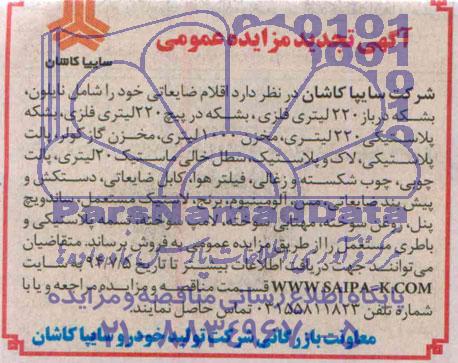 آگهی تجدید مزایده عمومی
سایپا کاشان
شرکت سایپا کاشان در نظر دارد اقلام ضایعاتی خود را شامل نایلون،
بشکه درباز ۲۲۰ لیتری فلزی، بشکه در پیچ ۲۲۰لیتری فلزی، بشکه
پلاستیکی ۲۲۰ لیتری، مخزن ۱۰۰۰ لیتری، مخزن گازکولر، پالت
پلاستیکی، لاک و پلاستیک، سطل خالی ماستیک ۲۰لیتری، پالت
چوبی، چوب شکسته و زغالی، فیلتر هوا، کابل ضایعاتی، دستکش و
پیش بند ضایعاتی، مس، آلومینیوم، برنج، لاستیک مستعمل، ساندویچ
پنل، روغن سوخته، مهتابی سوخته، لامپ سوخته، تسمه پلاستیکی و
باطری مستعمل را از طریق مزایده عمومی به فروش برساند. متقاضیان
می‌توانند جهت دریافت اطلاعات بیشتر تا تاریخ ۹۴/۷/۵ به سایت
WWW.SAIPA-K.COM قسمت مناقصه و مزایده مراجعه و یا با
شماره تلفن ۰۳۱۵۵۸۱۱۸۲۳ تماس حاصل نمایند.
معاونت بازرگانی شرکت تولید خودرو سایپا کاشان
ParsNamadData
پایگاه اطلاع رسانی مناقصه و مزایده